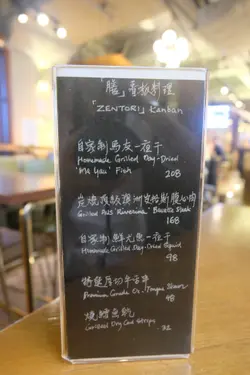 「膳」看板料理
「ZENTORI」 Kanban
自家制馬友一夜干
Homemade Grilled Day-Dried
'Ma Yau' Fish
208
炭燒頂級澳洲安格斯腹心肉
Grilled Aus 'Riverine' Bavette Steak
168
自家制鮮尤魚一夜干
Homemade Grilled Day-Dried Squid
98
特選厚切牛舌串
Premium Grade Ox-Tongue Skewer
48
燒鱈魚乾
Grilled Dry Cod Strips